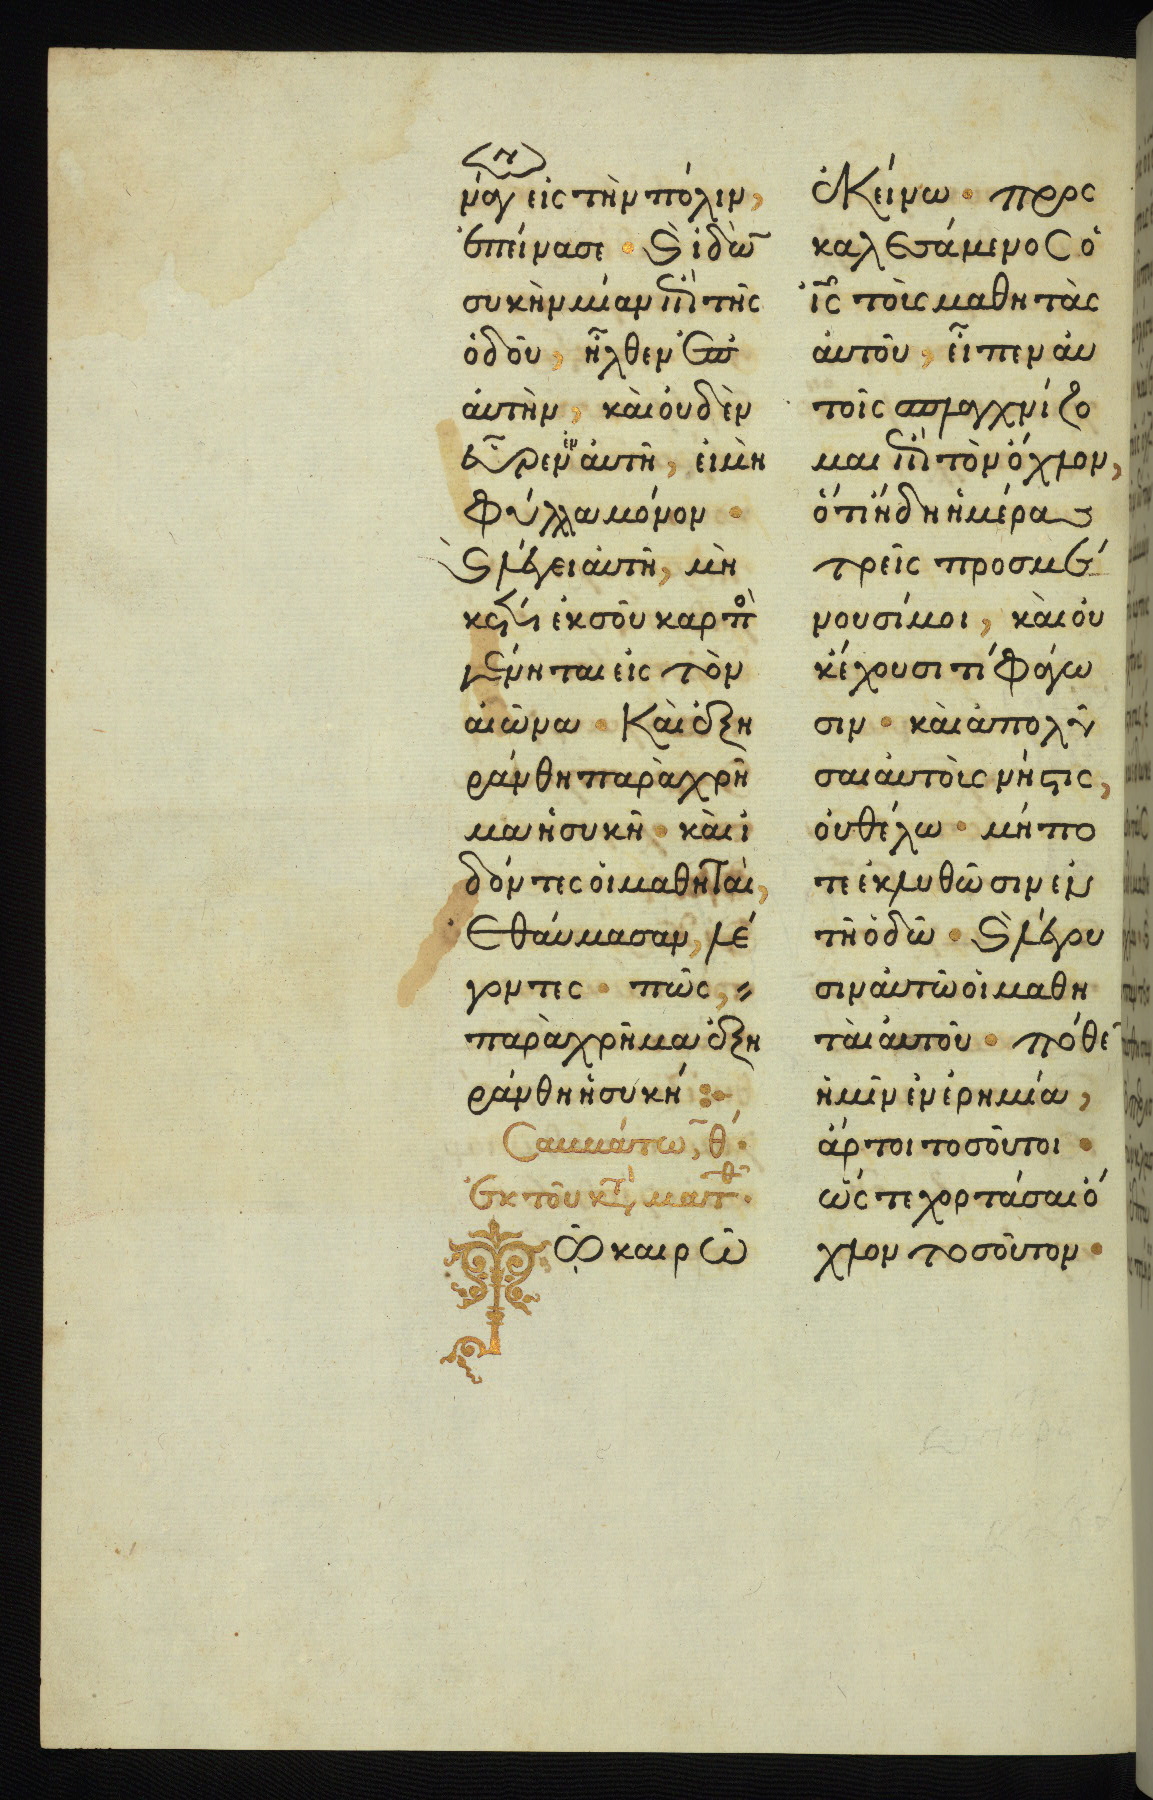 νάγ εἰς τὴν πόλιν,
ἐπείνασε · κὶ ἰδὼ
συκὴν μίαν ἐπὶ τῆς
ὁδοῦ, ἦλθεν ἐπ
ἀυτὴν, κὰι ὀυδὲν
εὗρεν ἐν ἀυτῆ, εἰμὴ
φύλλα μόνον ·
κὶ λέγει ἀυτῆ, μὴ
κέτι ἐκ σοῦ καρπὸ
γένηται εἰς τὸν
ἀιῶνα · Κὰι ἐξη
ράνθη παρὰχρῆ
μα ἡ συκῆ · κὰι ἰ
δόντες ὁι μαθηταὶ,
ἐθάυμασαν, λέ
γοντες · πῶς,
παρὰχρῆμα ἐξη
ράνθη ἡ συκή :·
Σαββάτω, θ ·
ἐκ τοῦ κτ ματθ ·
Τῶ καιρῶ
ἐκείνω · προς
καλεσάμενος ὁ
ἰς τὸις μαθητὰς
ἀυτοῦ, εἶπεν ἀυ
τοῖς σπλαγχνίζο
μαι ἐπὶ τὸν ὄχλον,
ὅτι ἤδη ἡμέρας
τρεῖς προσμέ
νουσί μοι, κὰι ὀυ
κ ἔχουσι τί φάγω
σιν · κὰι ἀπολῦ
σαι ἀυτὸις νήστις,
ὀυ θέλω · μήπο
τε ἐκλυθῶσιν ἐν
τῆ ὁδῶ · κὶ λέγου
σιν ἀυτῶ ὁι μαθη
τὰι ἀυτοῦ · πόθε
ἡμῖν ἐν ἐρημία,
ἄρτοι τοσοῦτοι ·
ὥς τε χορτάσαι ὄ
χλον τοσοῦτον ·